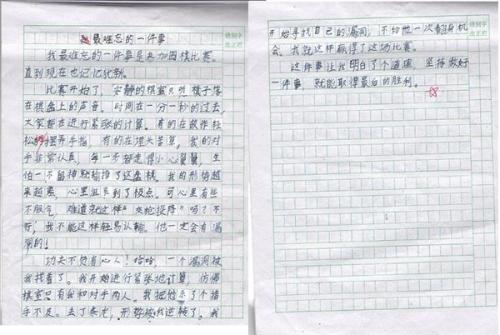 最难忘的一件事
我最难忘的一件事是参加围棋比赛。
直到现在也记忆犹新。
比赛开始了，安静的棋室只听棋子落
在棋盘上的声音。时间在一分一秒的过去，
大家都在进行紧张的计算。有的在故作轻
松的摆弄手指，有的在埋头苦草。我的对
手非常认真，每一步都走得小心翼翼，生
怕一不留神就输掉了这盘棋。我的形势越
来越紧，心里紧张到了极点。可心里有些
不服气，难道就这样“束手投降”吗？不
行，我不能这样轻易认输。他一定会有漏
洞的！
功夫不负有心人！哈哈，一个漏洞被
我找着了。我开始进行紧张地计算，仿佛
棋室只有我和对手两人。我把他杀了个措
手不及。去了春光，形势被我逆转了。我
开始寻找自己的漏洞，不给他一次翻身机
会。我就这样赢得了这场比赛。
这件事让我明白了个道理，坚持做好
一件事，就能取得最后的胜利。